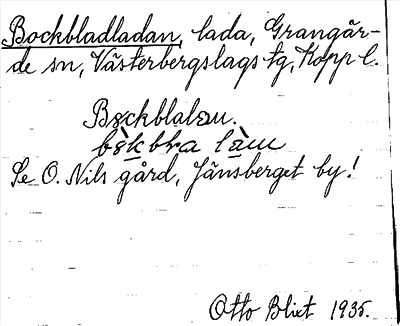 Bockbladladan, lada, Grangär-
de sn, Västerbergslags tg, Kopp l.
Bǫckblalam.
bǫ̀kbra làm
Se O. Nils gård, Jänsberget by!
Otto Blixt 1935.